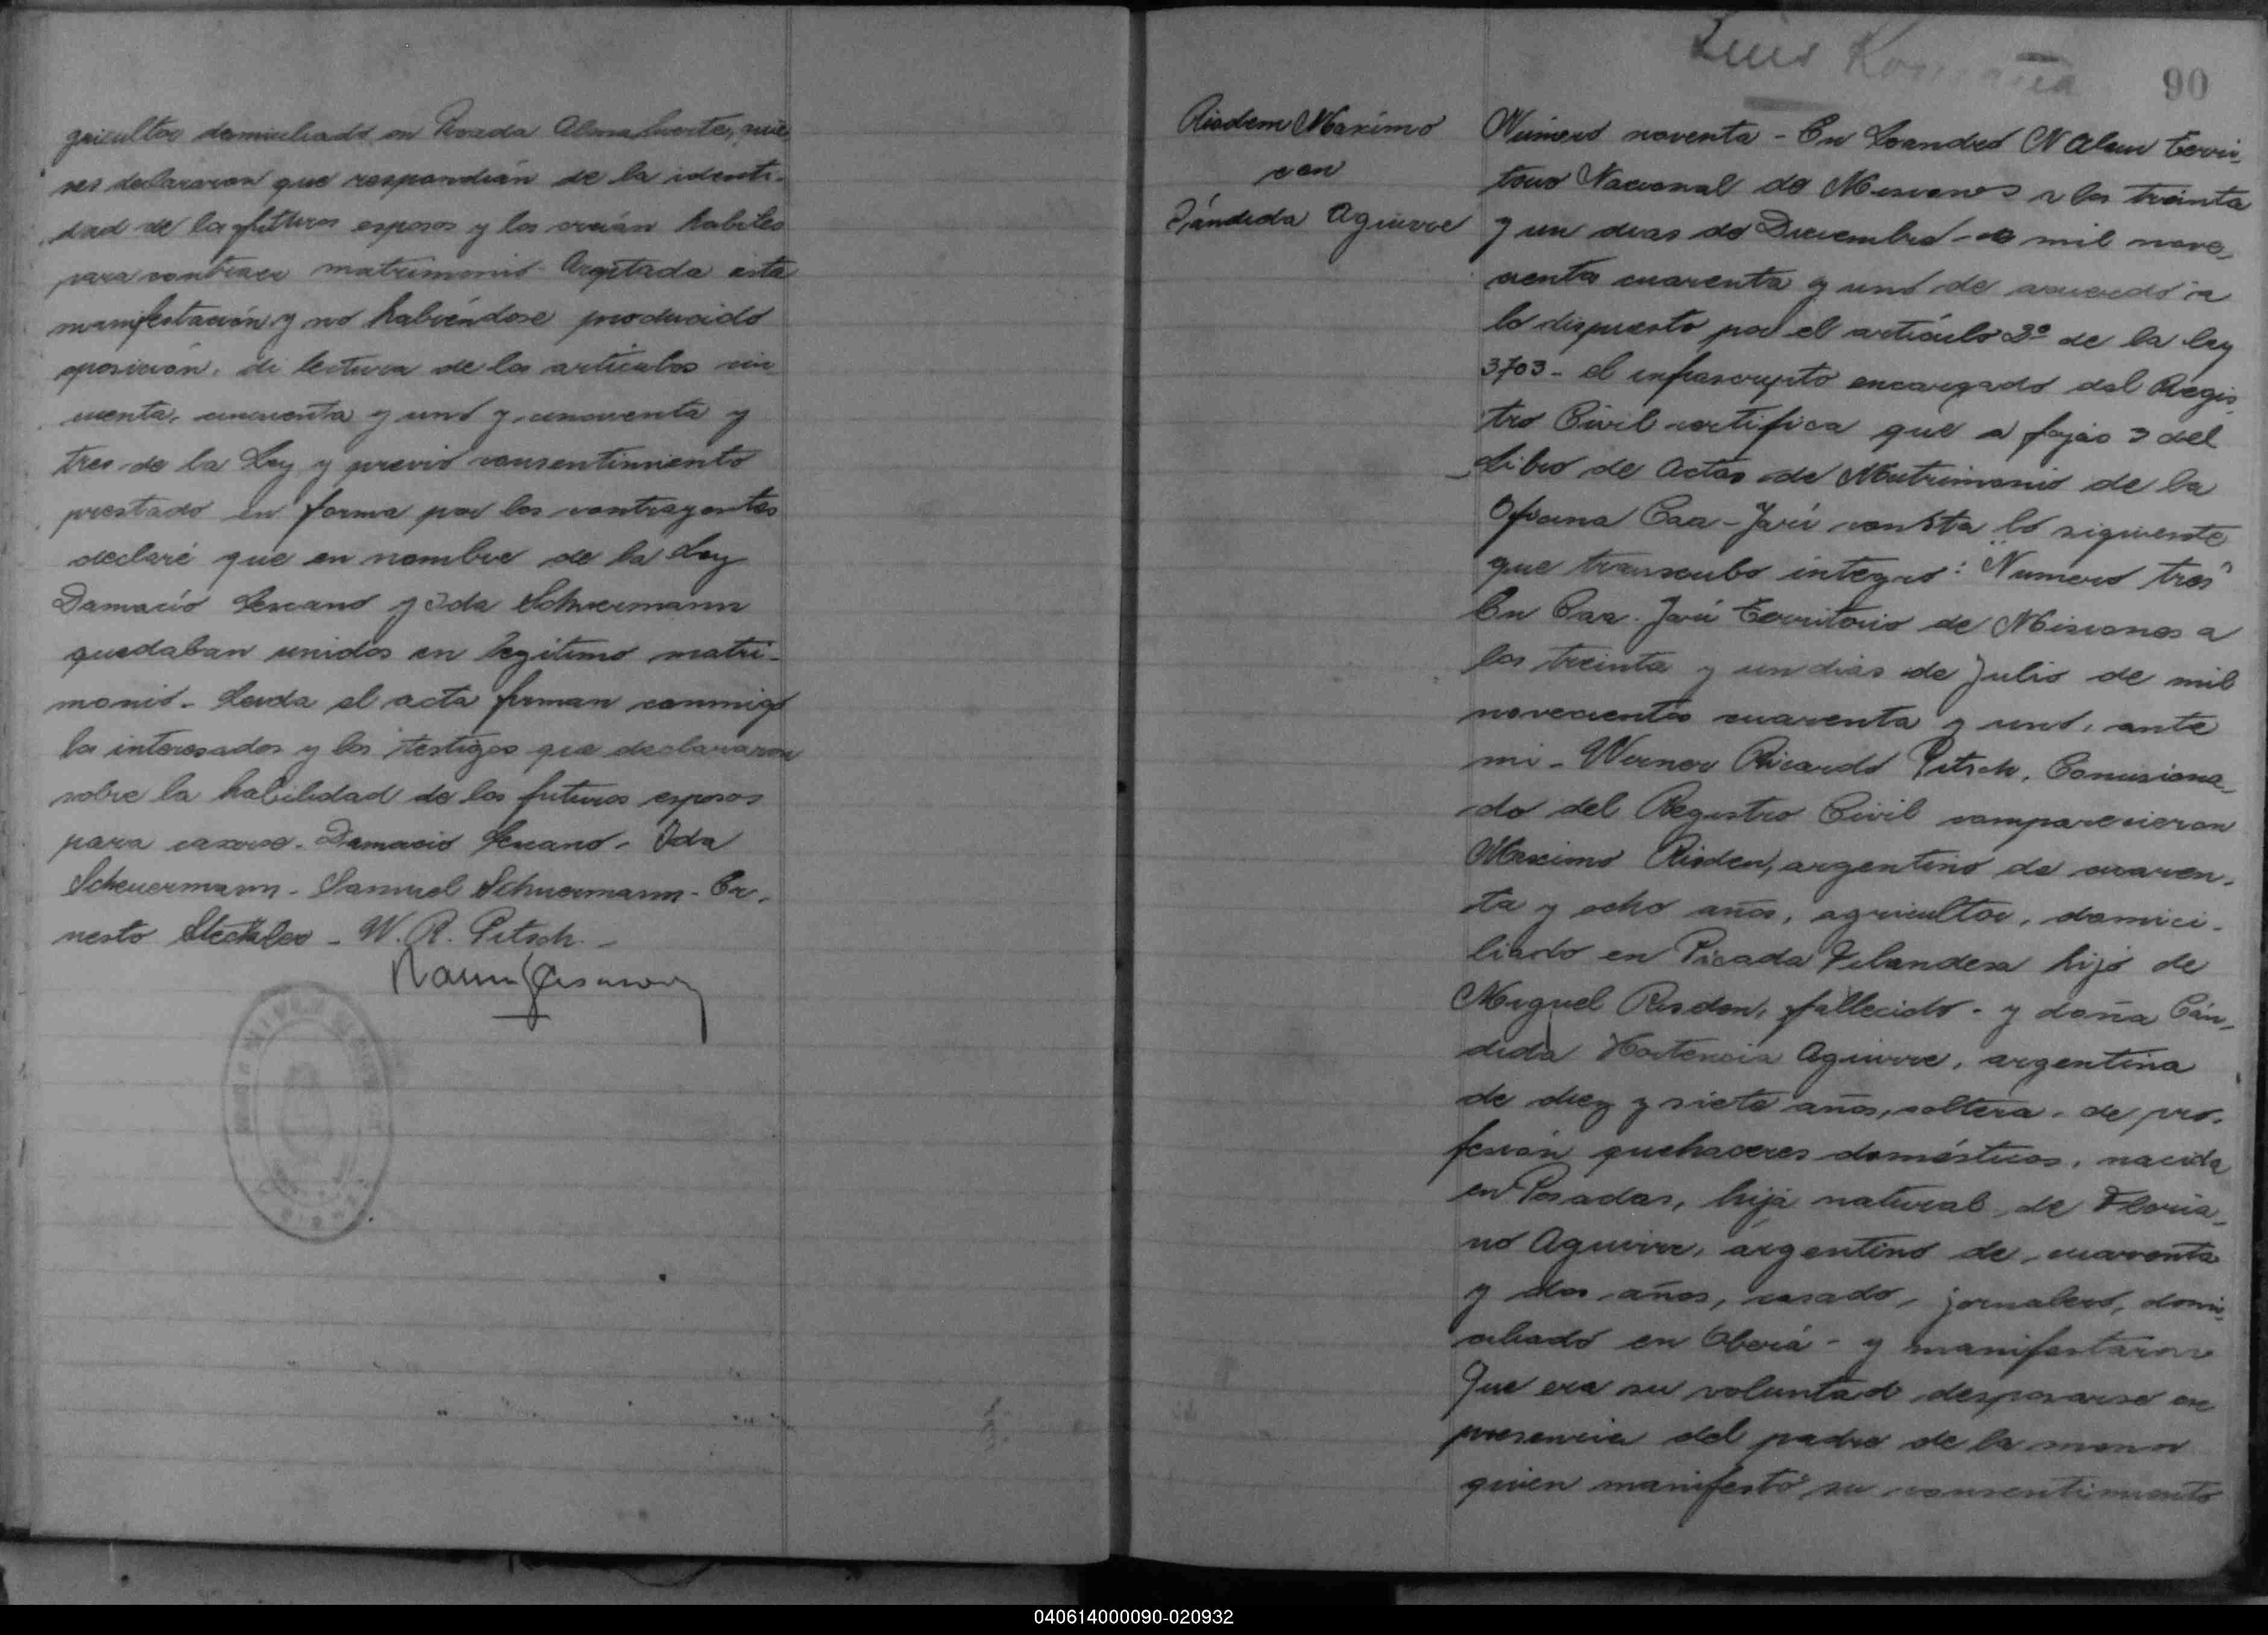 gricultor domiciliado en Picada Almafuerte, quie
nes declararon que respondián de la identi-
dad de los futuros esposos y los creián habiles
para contraer matrimonio. Aceptada esta
manifestación y no habiéndose producido
oposición, di lectura de los articulos cin
cuenta, cincuenta y uno y cincuenta y
tres de la Ley y previo consentimiento
prestado en forma por los contrayentes
declaré que en nombre de la Ley
Damacio Lescano y Ida Schuermann
quedaban unidos en legitimo matri-
monio. Leida el acta firman conmigo
los interesados y los testigos que declararon
sobre la habilidad de los futuros esposos
para casarse. Damacio Lescano - Ida
Scheuermann - Samuel Schuermann - Er-
nesto Steckler - W. R. Pitsch. -
Luis Romaña
90
Risdem Maximo
con
Cándida Aguirre
Número noventa - En Leandro N Alem Terri-
torio Nacional de Misiones a los treinta
y un dias de Diciembre de mil nove-
cientos cuarenta y uno de acuerdo a
lo dispuesto por el artículo 3º de la ley
3703 - el infrascripto encargado del Regis
tro Civil certifica que a fojas 3 del
Libro de Actas de Matrimonio de la
Oficina Caa-Yarí consta lo siguiente
que transcribo integro: "Numero tres"
En Caa-Yarí Territorio de Misiones a
los treinta y un dias de Julio de mil
novecientos cuarenta y uno, ante
mi - Werner Ricardo Pitsch, Comisiona-
do del Registro Civil comparecieron
Maximo Risden, argentino de cuaren-
ta y ocho años, agricultor, domici-
liado en Picada Filandesa hijo de
Miguel Risdon, fallecido - y doña Cán-
dida Hortencia Aguirre, argentina
de diez y siete años, soltera, de pro-
fesión quehaceres domésticos, nacida
en Posadas, hija natural de Floria-
no Aguirre, argentino de cuarenta
y dos años, casado, jornalero, domi-
ciliado en Oberá - y manifestaron
Que era su voluntad desposarse en
presencia del padre de la menor
quien manifestó su consentimiento
040614000090-020932